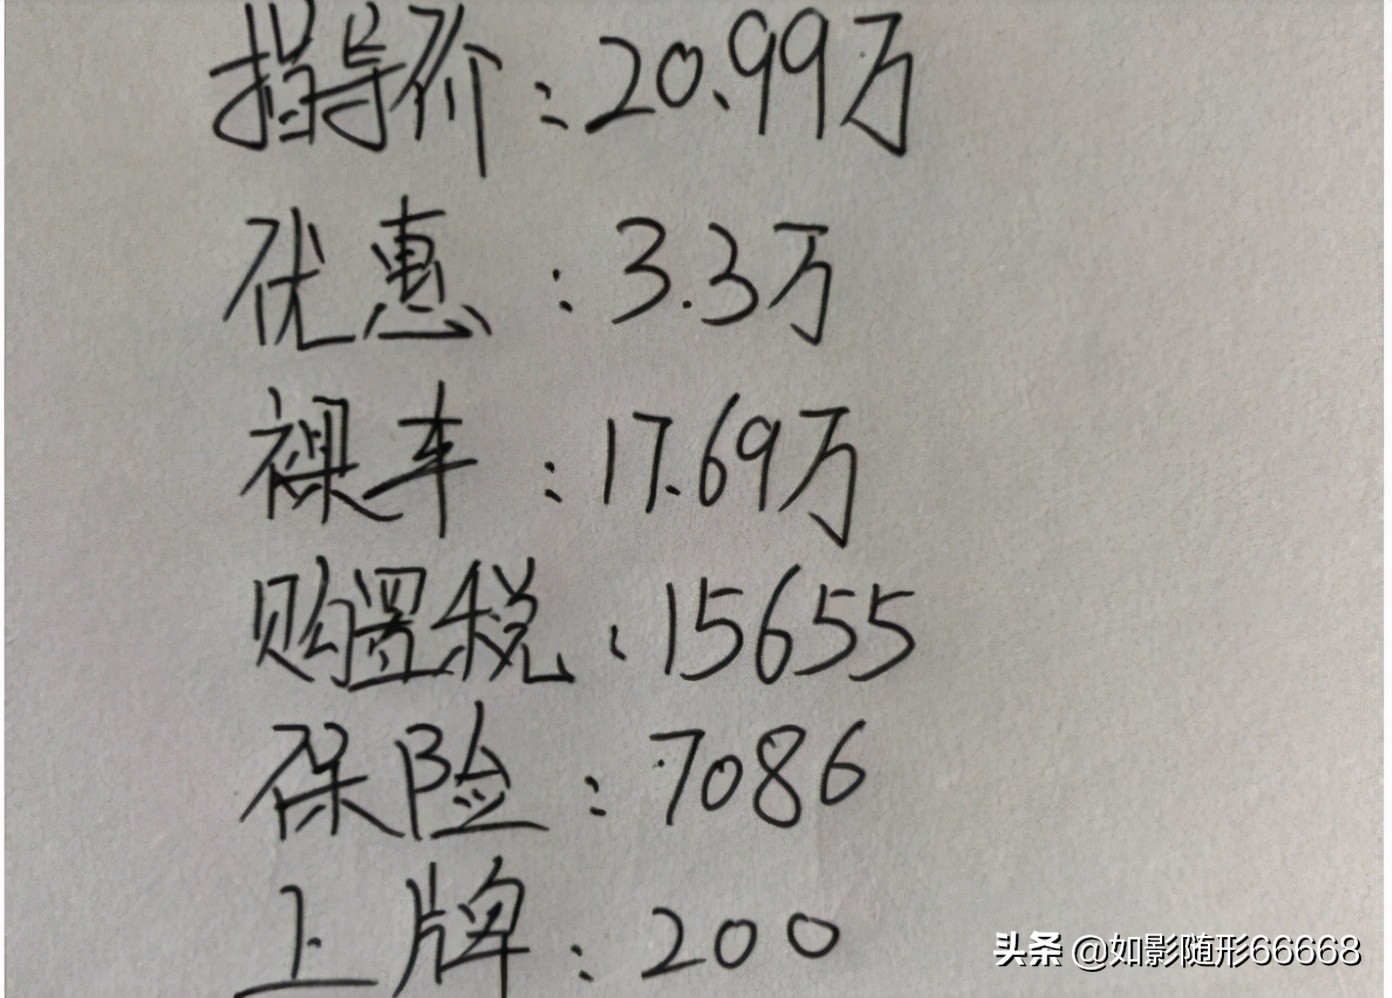 指导价：20.99万
优惠：3.3万
裸车：17.69万
购置税：15655
保险：7086
上牌：200
头条 @如影随形66668